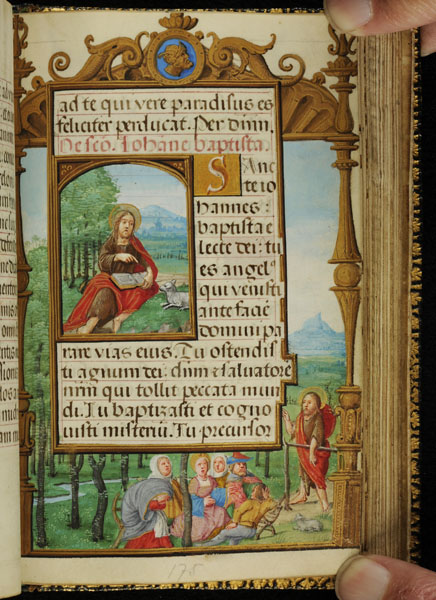 ad te qui vere paradisus es
feliciter perducat. Per dñm.
De sco. Iohane baptista.
SANC
te io
hannes
baptista e
lecte dei: tu
es angelꝰ
qui venisti
ante facie
domini pa
rare vias eius. Tu ostendis
ti agnum dei: dñm et salvatorē
nrm qui tollit peccata mun
di. Tu baptizasti et cogno
visti misteriū. Tu precursor
175